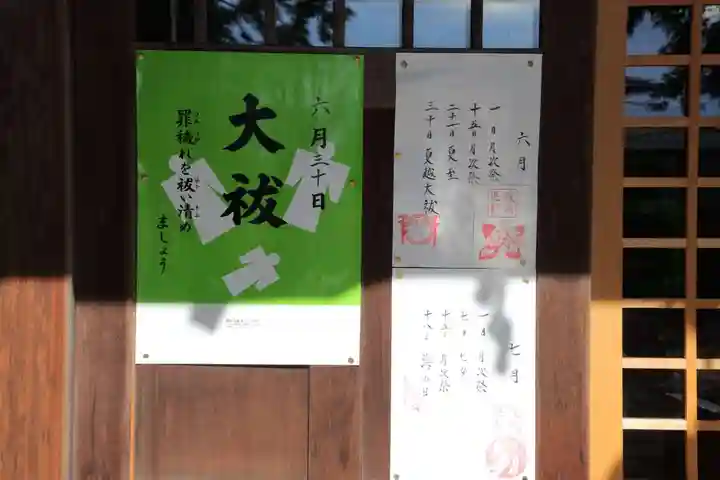 六月三十日
大祓
罪穢れを祓い清め
ましょう
六月
一日 月次祭
十五日 月次祭
二十一日 夏至
三十日 夏越大祓
七月
一日 月次祭
七日 七夕
十五日 月次祭